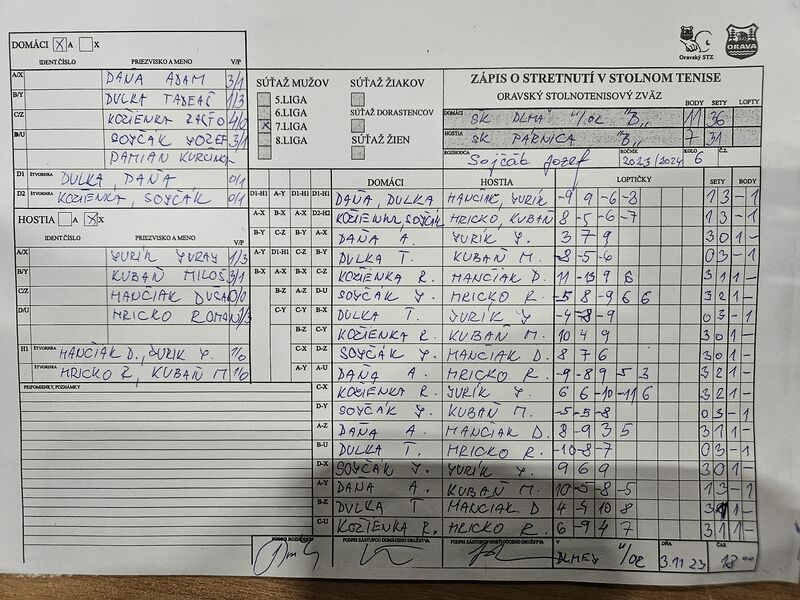 DOMÁCI X A X
IDENT.ČÍSLO PRIEZVISKO A MENO V/P
A/X DAŇA ADAM 3/1
B/Y DULKA TADEÁŠ 1/3
C/Z KOŽIENKA 4/0
D/U SOJČÁK JOZEF 3/1
DAMIAN KURCINKA
D1 ŠTVORHRA DULKA, DAŇA 0/1
D2 ŠTVORHRA KOZIENKA, SOJČÁK 0/1
HOSTIA A X X
IDENT.ČÍSLO PRIEZVISKO A MENO V/P
A/X JURÍK JURAJ 1/3
B/Y KUBAŇ MILOŠ 3/1
C/Z MANČIAK DUŠAN
D/U HRICKO ROMAN
H1 ŠTVORHRA MANČIAK D., JURIK J. 1/0
ŠTVORHRA HRICKO R, KUBAŇ M 1/0
PRIPOMIENKY, POZNÁMKY
SÚŤAŽ MUŽOV SÚŤAŽ ŽIAKOV
5.LIGA
6.LIGA SÚŤAŽ DORASTENCOV
X 7.LIGA
8.LIGA SÚŤAŽ ŽIEN
Oravský STZ ORAVA
ZÁPIS O STRETNUTÍ V STOLNOM TENISE
ORAVSKÝ STOLNOTENISOVÝ ZVÄZ
BODY SETY LOPTY
DOMÁCI ŠK DLHÁ N/OR "B" 11 36
HOSTIA ŠK PÁRNICA "B" 7 31
ROZHODCA Sojčák Jozef ROČNÍK 2023/2024 KOLO 6 Č.Z.
DOMÁCI HOSTIA LOPTIČKY SETY BODY
D1-H1 A-Y D1-H1 D1-H1 DAŇA, DULKA MANCIAK, JURÍK -9 9 -6 -8 1 3 - 1
A-X B-X A-X D2-H2 KOZIENKA, SOJČÁK HRICKO, KUBAŇ 8 -5 -6 -7 1 3 - 1
B-Y C-Z B-Y A-X DAŇA A. JURÍK J. 3 7 9 3 0 1 -
A-Y D1-H1 C-Z B-Y DULKA T. KUBAŇ M. -8 -5 -6 0 3 - 1
B-X A-X B-X C-Z KOŽIENKA R. MANČIAK D. 11 -13 9 6 3 1 1 -
B-Z A-Z D-U SOJČÁK J. HRICKO R. -5 8 -9 6 6 3 2 1 -
C-Y C-Y B-X DULKA T. JURÍK J. -4 -8 -9 0 3 - 1
B-Z C-Y KOŽIENKA R. KUBAŇ M. 10 4 9 3 0 1 -
C-X D-Z SOJČÁK J. MANČIAK D. 8 7 6 3 0 1 -
A-Y A-U DAŇA A. HRICKO R. -9 -8 9 5 3 3 2 1 -
C-X KOŽIENKA R. JURÍK J. 6 6 -10 -11 6 3 2 1 -
D-Y SOJČÁK J. KUBAŇ M. -5 -5 -8 0 3 - 1
A-Z DAŇA A. MANČIAK D. 8 -9 3 5 3 1 1 -
B-U DULKA T. HRICKO R. -10 -8 -7 0 3 - 1
D-X SOJČÁK J. JURÍK J. 9 6 9 3 0 1 -
A-Y DAŇA A. KUBAŇ M. 10 -5 -8 -5 1 3 - 1
B-Z DULKA T MANČIAK D. 4 -9 10 8 3 1 1 -
C-U KOZIENKA R. HRICKO R. 6 -9 4 7 3 1 1 -
PODPIS ROZHODCU PODPIS ZÁSTUPCU DOMÁCEHO DRUŽSTVA PODPIS ZÁSTUPCU HOSŤUJÚCEHO DRUŽSTVA V DLHEJ N/OR DŇA 3.11.23 ČAS 18 00